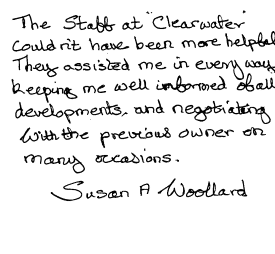 The Staff at "Clearwater"
couldn't have been more helpful
They assisted me in every way,
keeping me well informed of all
developments, and negotiating
with the previous owner on
many occasions.
Susan A Woollard